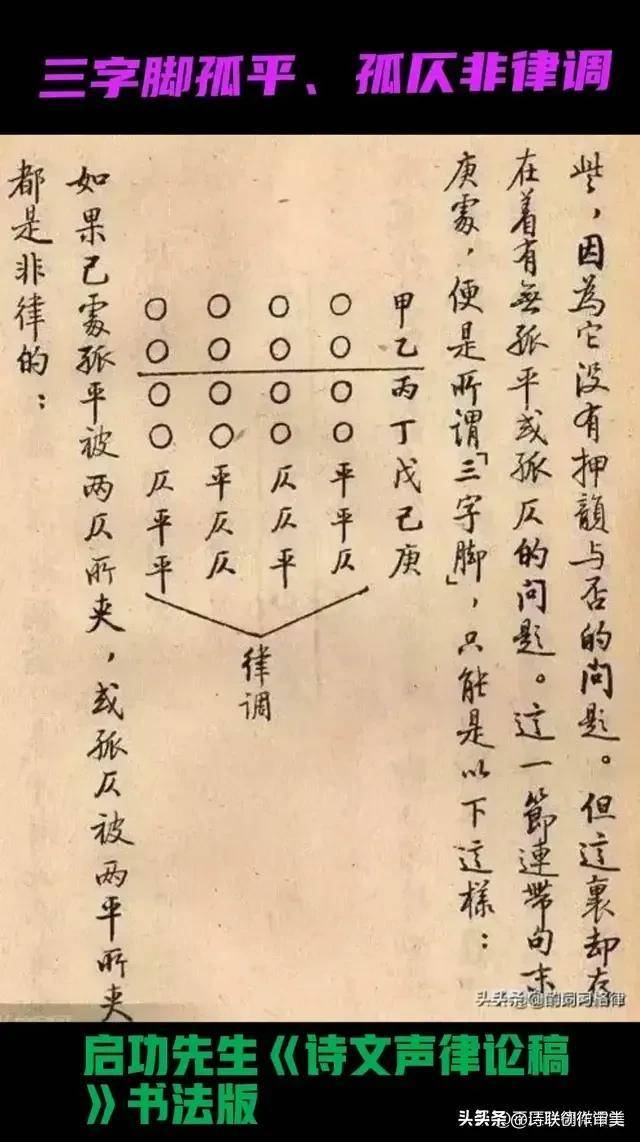 三字脚孤平、孤仄非律调
些，因為它没有押韻与否的问题。但這裏却存
在着有無孤平或孤仄的问题。這一節連帶句末
庚處，便是所谓「三字脚」，只能是以下這樣：
甲乙丙丁戊己庚
○○○○平平仄
○○○○仄仄平
○○○○平仄仄
○○○○仄平平
律调
如果己處孤平被两仄所夹，或孤仄被两平所夹
都是非律的：
启功先生《诗文声律论稿
》书法版
头条
头条